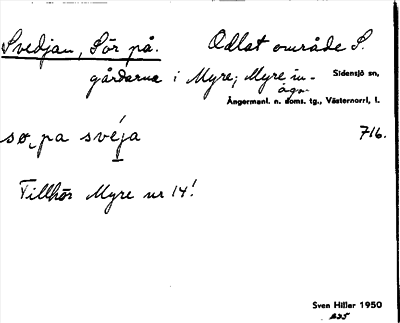 Svedjan, Sör på. Odlat område S.
gårdarna i Myre; Myre in-
ägor
Sidensjö sn,
Ångermanl. n. doms. tg., Västernorrl, l.
sø pa svéja 716.
Tillhör Myre nr 14!
Sven Hiller 1950